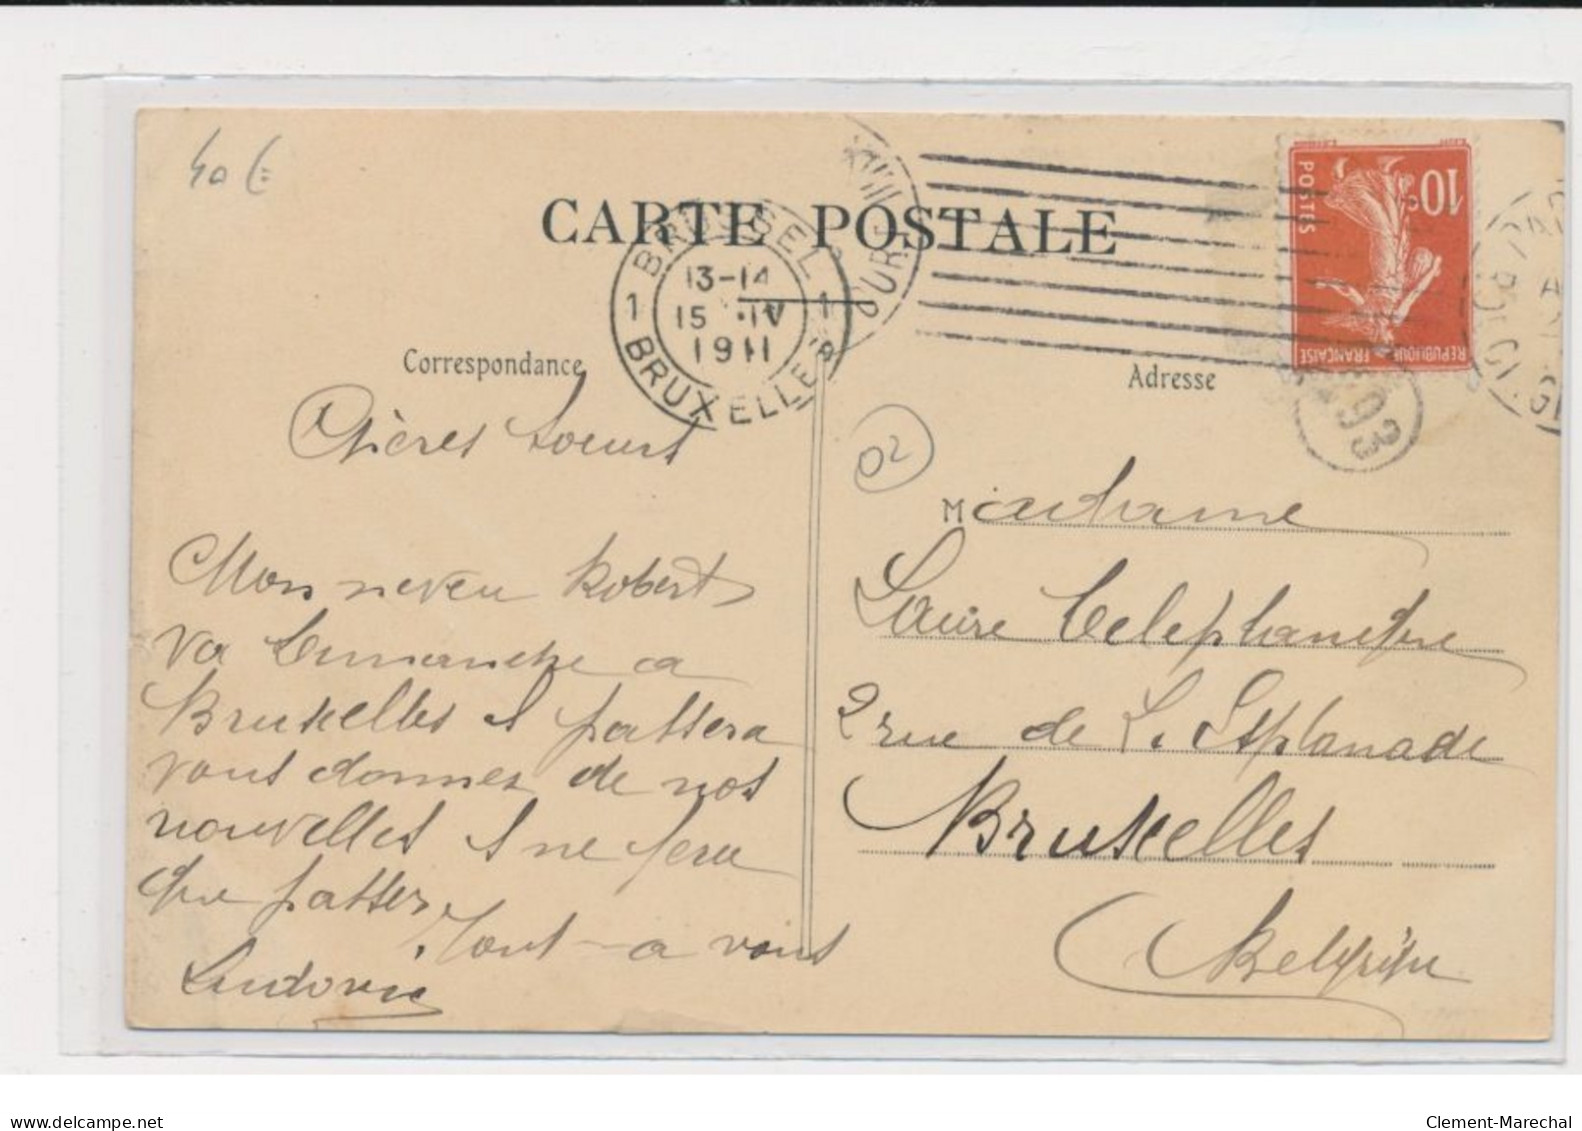 40€
CARTE POSTALE
BRUSSEL
13-14
1 15 IV 1
1911
BRUXELLES
10c
POSTES
REPUBLIQUE
FRANÇAISE
Correspondance
Adresse
02
Chères Soeurs
Mon neveu Robert
va Dimanche a
Bruxelles et passera
vous donner de nos
nouvelles et ne fera
que passer
Tout a vous
Ludovic
Madame
Laure
2 rue de L. Esplanade
Bruxelles
Belgique
delcampe.net
Clement-Marechal